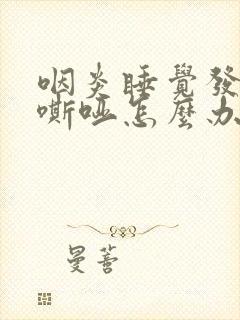 咽炎睡覺發
嘶啞怎麼办
曼蓉